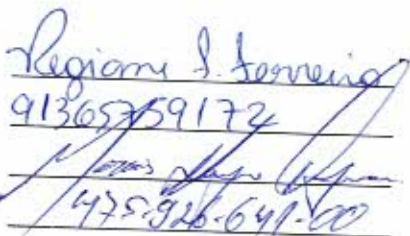 Regiane S. Ferreira
91365759172
475.926.641-00